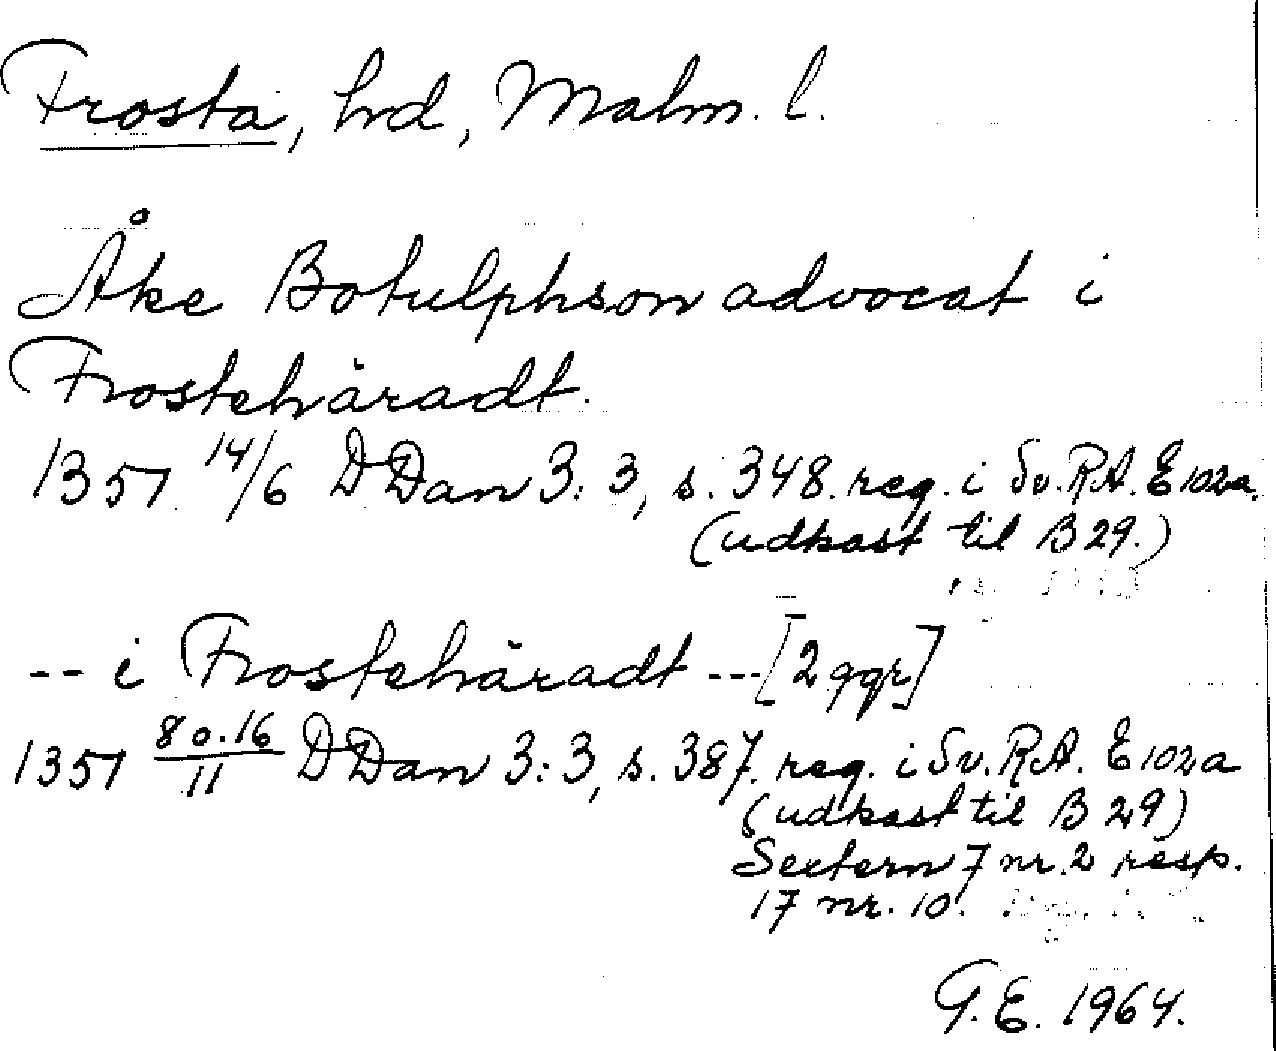 Frosta, hd, Malm. l.
Åke Botulphson advocat i
Frostehäradt.
1351 14/6 DDan 3:3, s. 348. reg. i Sv. RA. E 102a.
(udkast til B 29.)
-- i Frostehäradt --- [2 ggr]
1351 8 o. 16/11 DDan 3:3, s. 387. reg. i Sv. RA. E 102a
(udkast til B 29)
Sextern 7 nr. 2 resp.
17 nr. 10.
G.E. 1964.